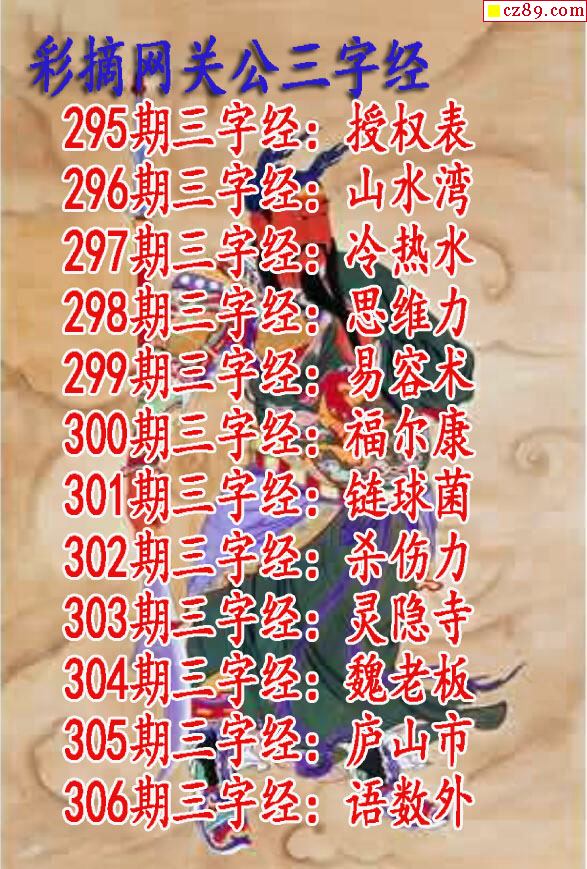 cz89.com
彩摘网关公三字经
295期三字经：授权表
296期三字经：山水湾
297期三字经：冷热水
298期三字经：思维力
299期三字经：易容术
300期三字经：福尔康
301期三字经：链球菌
302期三字经：杀伤力
303期三字经：灵隐寺
304期三字经：魏老板
305期三字经：庐山市
306期三字经：语数外